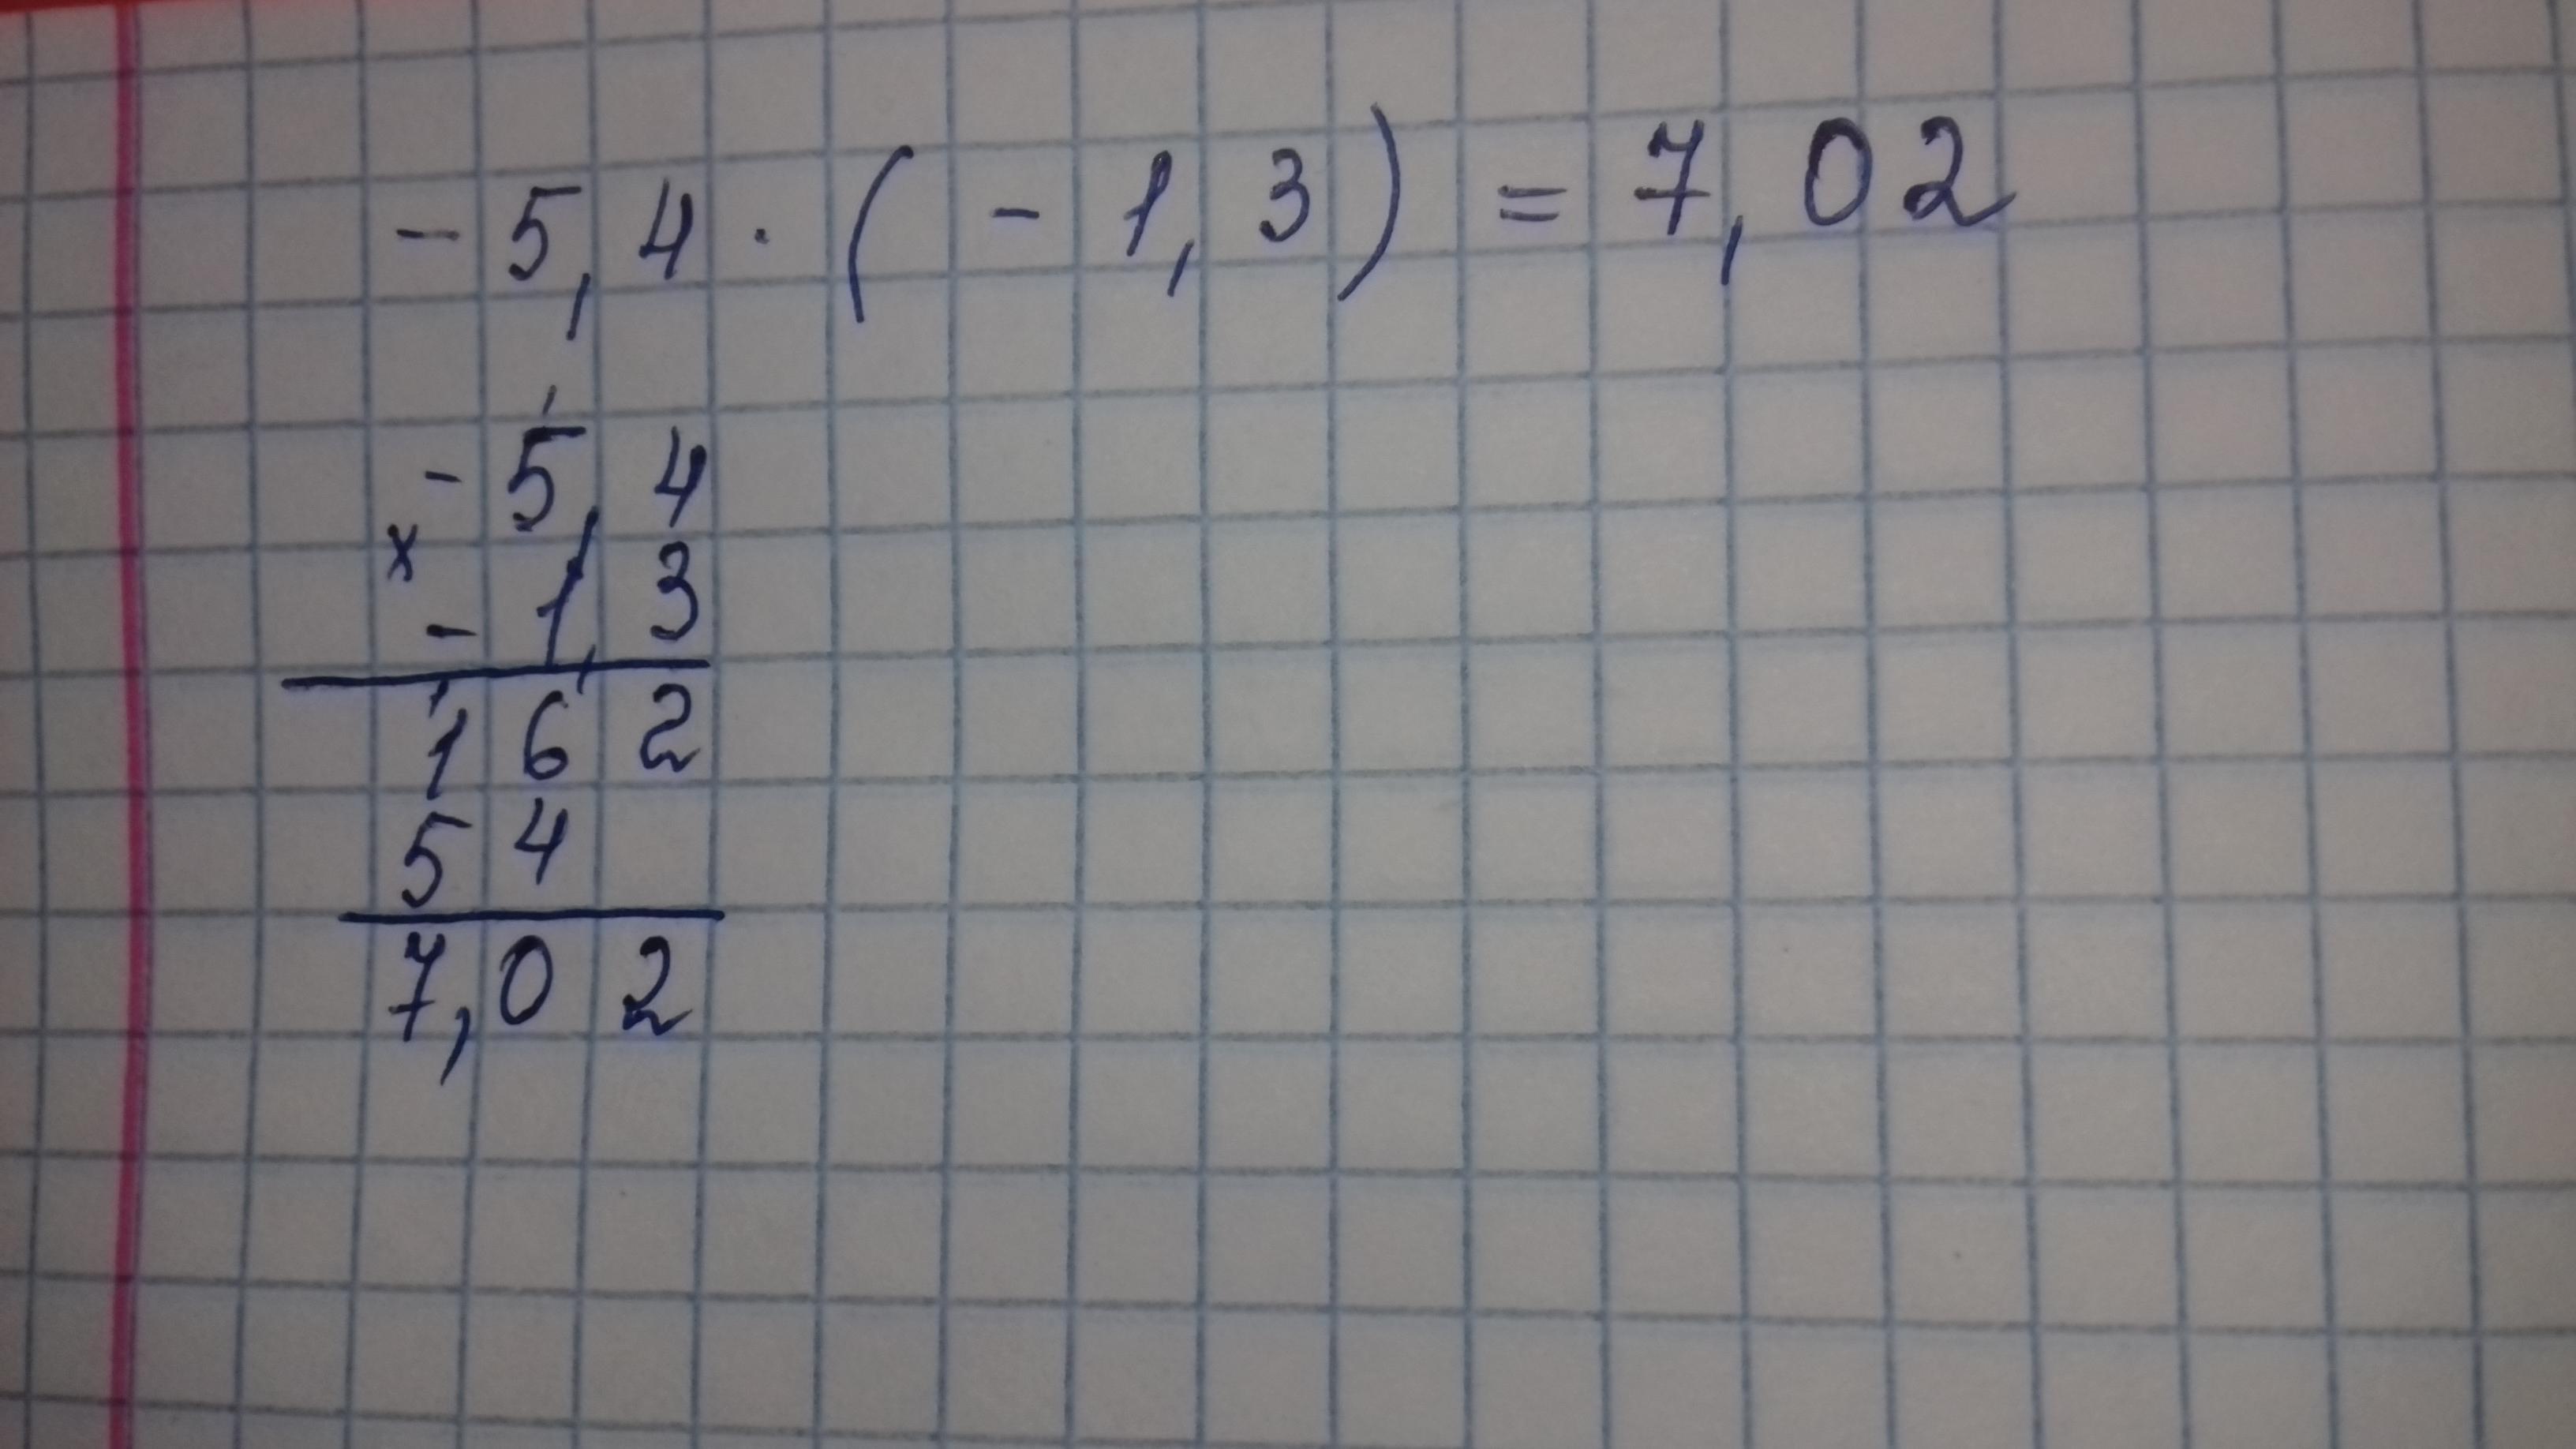 - 5,4 · ( - 1,3 ) = 7,02
- 5,4
x
- 1,3
162
54
7,02